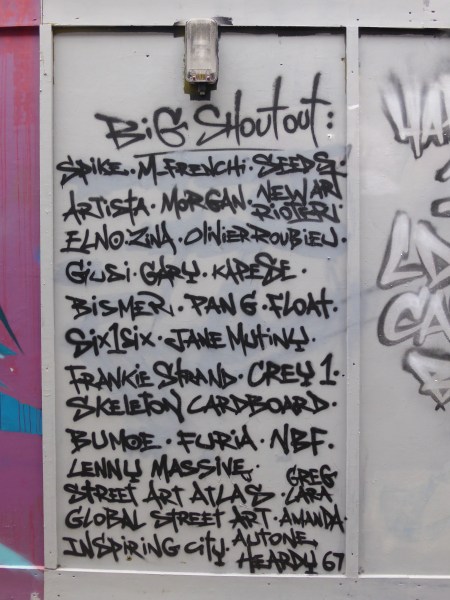 BiG SHOUTOUT:
SPIKE · M.FRENCHI · SEEDS1 ·
ARTISTA · MORGAN · NEW ART RIOTER! ·
ELNO · ZINA · OLIVIER ROUBIEU ·
GIUSI · GARY · KAPESE ·
BISMER · PANG · FLOAT ·
SIX1SIX · JANE MUTINY ·
FRANKIE STRAND · CREY 1 ·
SKELETON CARDBOARD ·
BUMOE · FURIA · NBF ·
LENNY MASSIVE ·
STREET ART ATLAS · GREG LARA
GLOBAL STREET ART · AMANDA ·
INSPIRING CITY · AUTONE
HEARDY 67